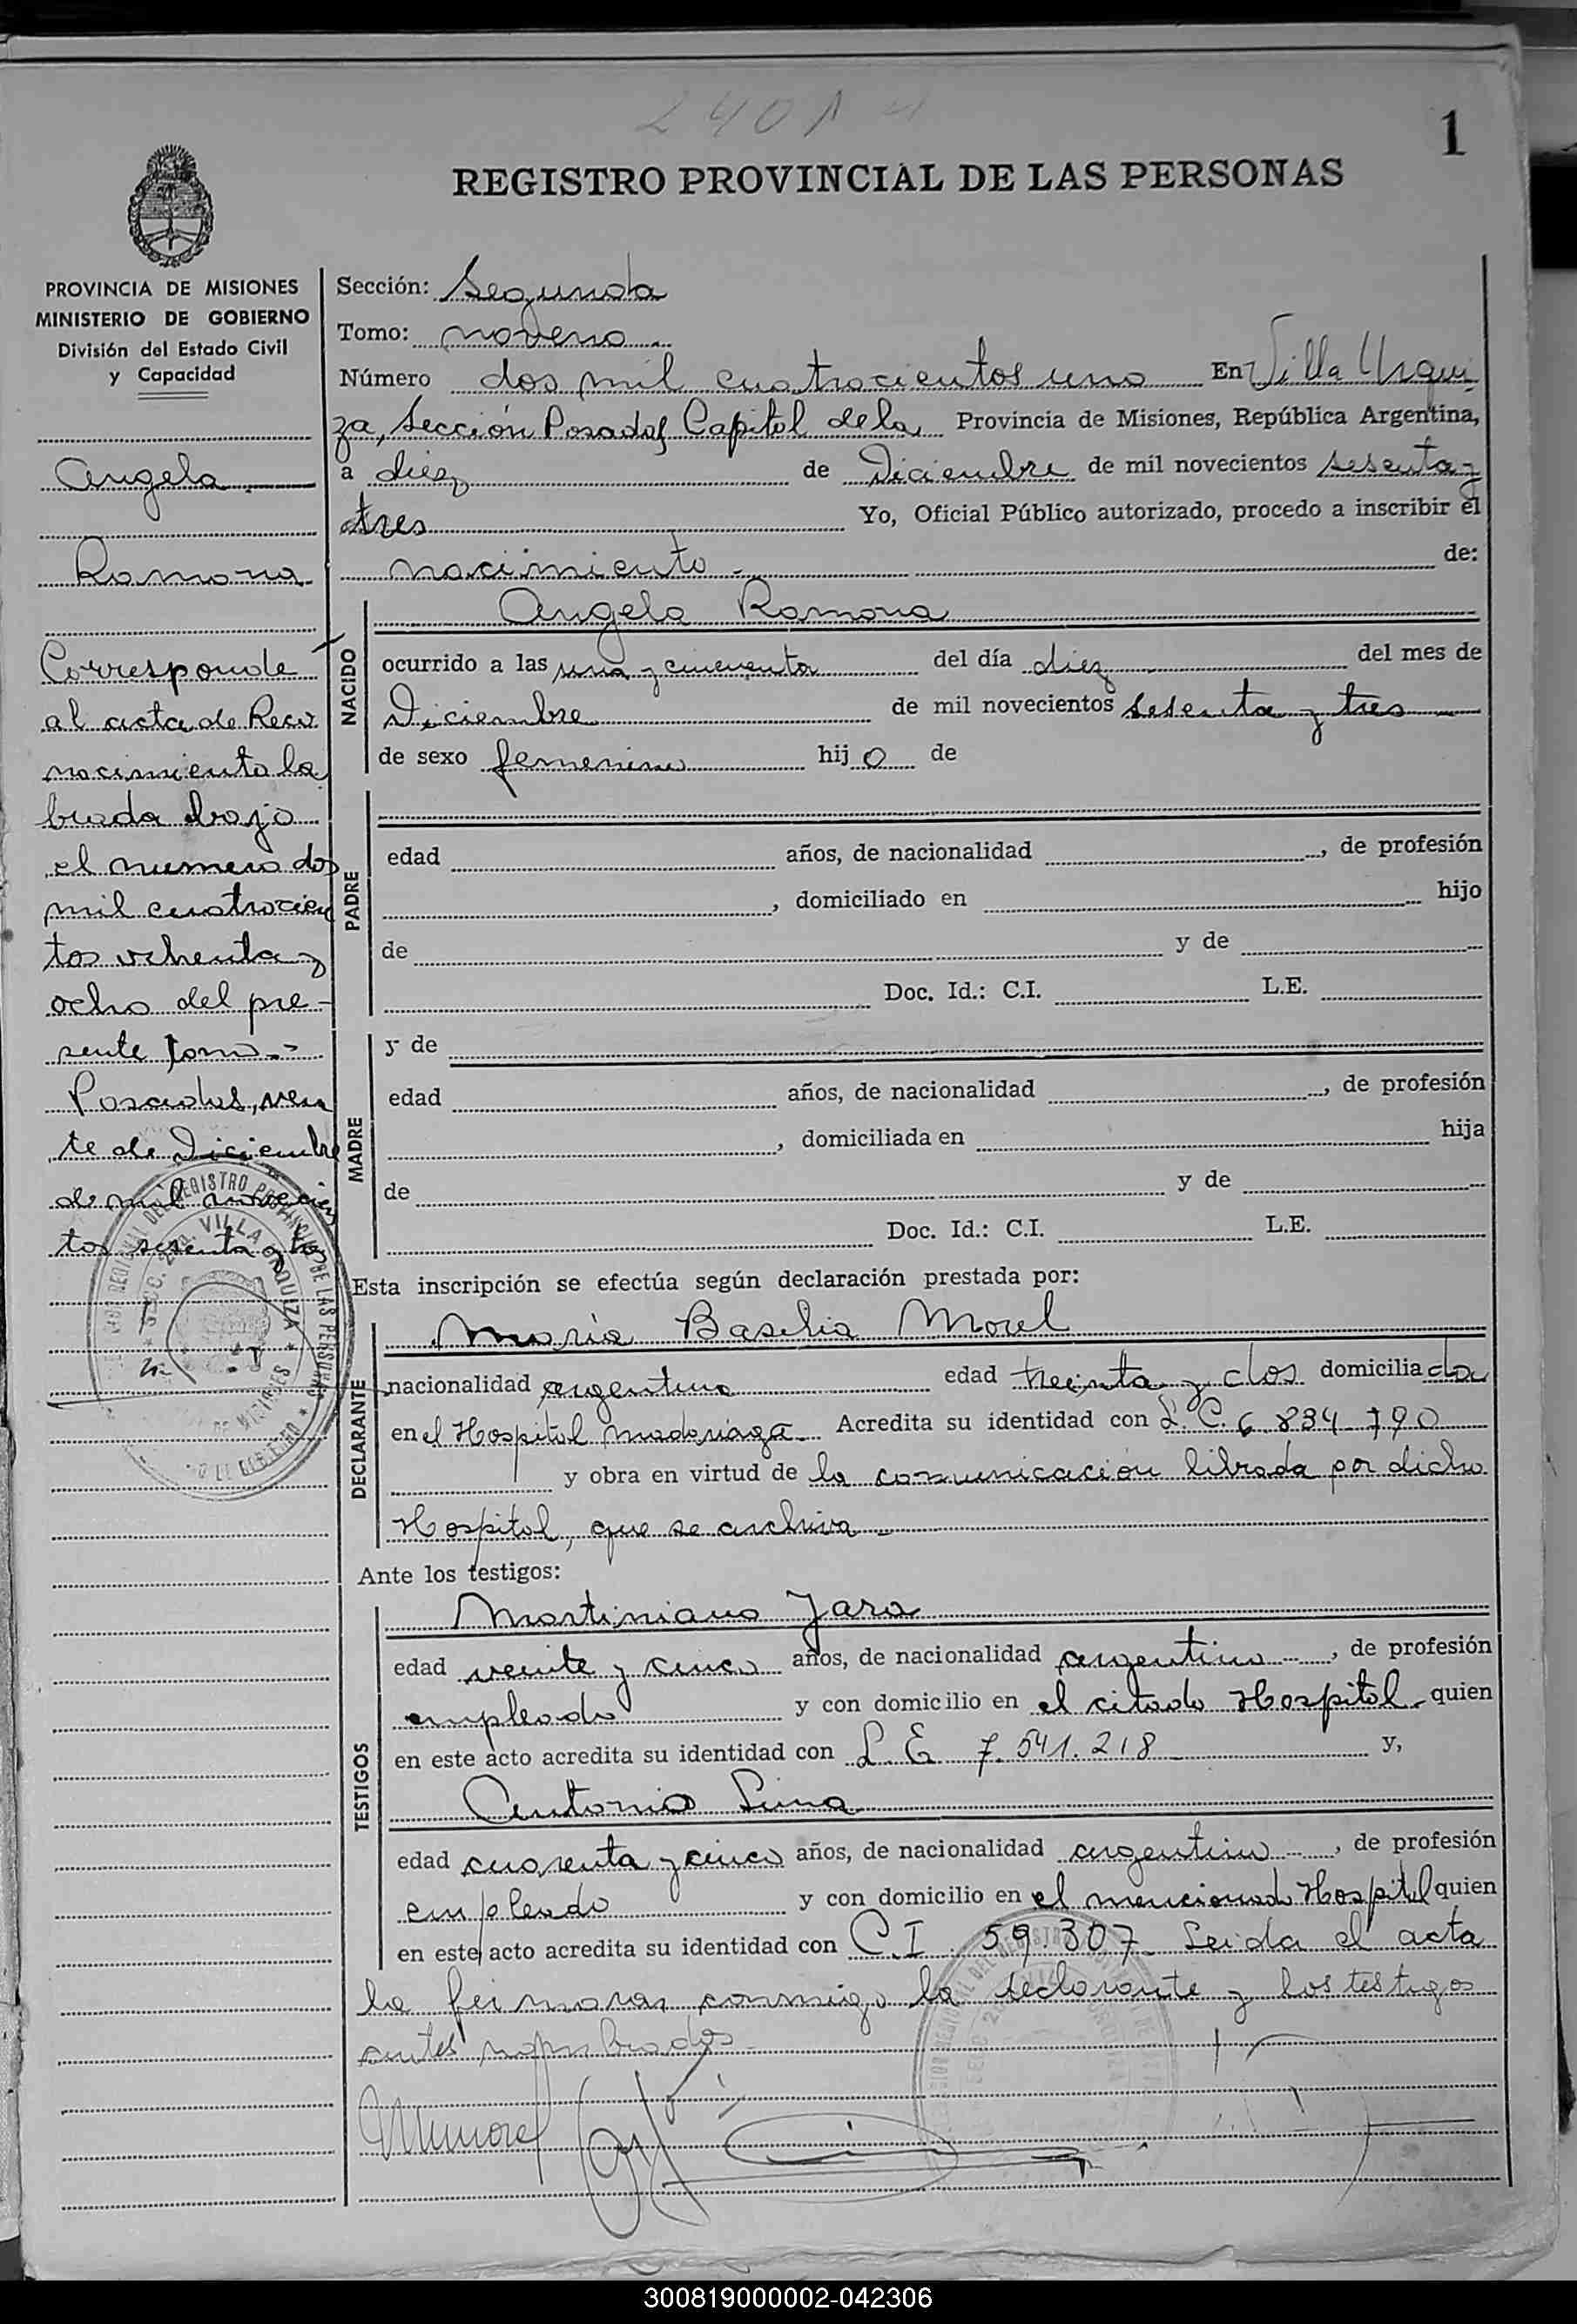 2401
1
REGISTRO PROVINCIAL DE LAS PERSONAS
PROVINCIA DE MISIONES
MINISTERIO DE GOBIERNO
División del Estado Civil
y Capacidad
Angela
Ramona
Corresponde
al acta de Reco
nocimiento la
brada bajo
el numero dos
mil cuatrocien
tos ochenta y
ocho del pre-
sente tomo.-
Posadas, vein
te de Diciembre
de mil novecien
tos sesenta y tres
Sección: Segunda
Tomo: noveno.
Número dos mil cuatrocientos uno En Villa Urqui
za, Sección Posadas Capital de la Provincia de Misiones, República Argentina,
a diez de Diciembre de mil novecientos sesenta y
tres Yo, Oficial Público autorizado, procedo a inscribir el
nacimiento.- de:
NACIDO
Angela Ramona
ocurrido a las una y cincuenta del día diez del mes de
Diciembre de mil novecientos sesenta y tres
de sexo femenino hij a de
PADRE
edad años, de nacionalidad , de profesión
, domiciliado en hijo
de y de
Doc. Id.: C.I. L.E.
MADRE
y de
edad años, de nacionalidad , de profesión
, domiciliada en hija
de y de
Doc. Id.: C.I. L.E.
Esta inscripción se efectúa según declaración prestada por:
DECLARANTE
Maria Basilia Morel
nacionalidad argentina edad treinta y dos domicilia da
en el Hospital Madariaga. Acredita su identidad con L.C. 6.834.790
y obra en virtud de la comunicación librada por dicho
Hospital, que se archiva.-
Ante los testigos:
TESTIGOS
Martiniano Jara
edad veinte y cinco años, de nacionalidad argentino , de profesión
empleado y con domicilio en el citado Hospital quien
en este acto acredita su identidad con L.E. 7.541.218 y,
Antonio Lima
edad cuarenta y cinco años, de nacionalidad argentino , de profesión
empleado y con domicilio en el mencionado Hospital quien
en este acto acredita su identidad con C.I. 59.307. Leida el acta
la firmaran conmigo la declarante y los testigos
antes nombrados
300819000002-042306